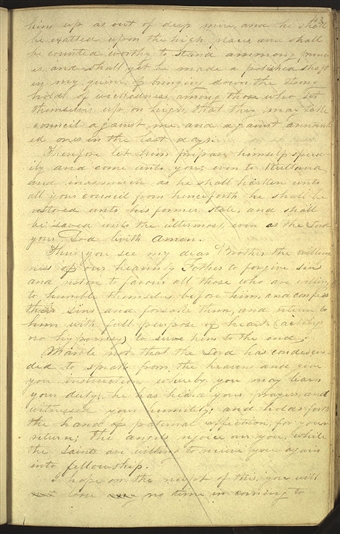 him up as out of deep mire, and he shall
be exalted upon the high places and shall
be counted worthy to stand ammong prin
ces and shall yet be made a polished shaft
in my quiver of bringing down the strong
holds of wickedness among those who set
themselves up on high, that they may take
council against me and against annoint
ed ones in the last days.
Therefore let him prepare himself speed
ily and come unto you even to Kirtland,
and inasmuch as he shall harken unto
all your council from henceforth he shall be
restored unto his former state, and shall
be saved unto the uttermost, even as the Lord
your God liveth Amen.
Thus you see my dear Brother the willing
ness of our heavenly Father to forgive sins
and restore to favour all those who are willing
to humble themselves before him, and confess
their sins and forsake them, and return to
him with full purpose of heart (acting
no hypocrisy) to serve him to the end,
Marvle not that the Lord has condescen
ded to speak from the heavens and give
you instructions whereby you may learn
your duty; he has heard your prayers and
witnessed your humility; and holds forth
the hand of paternal affection for your
return; the angels rejoice over you, while
the saints are willing to receive you again
into fellowship.
I hope on the receipt of this, you will
lose no time in coming to